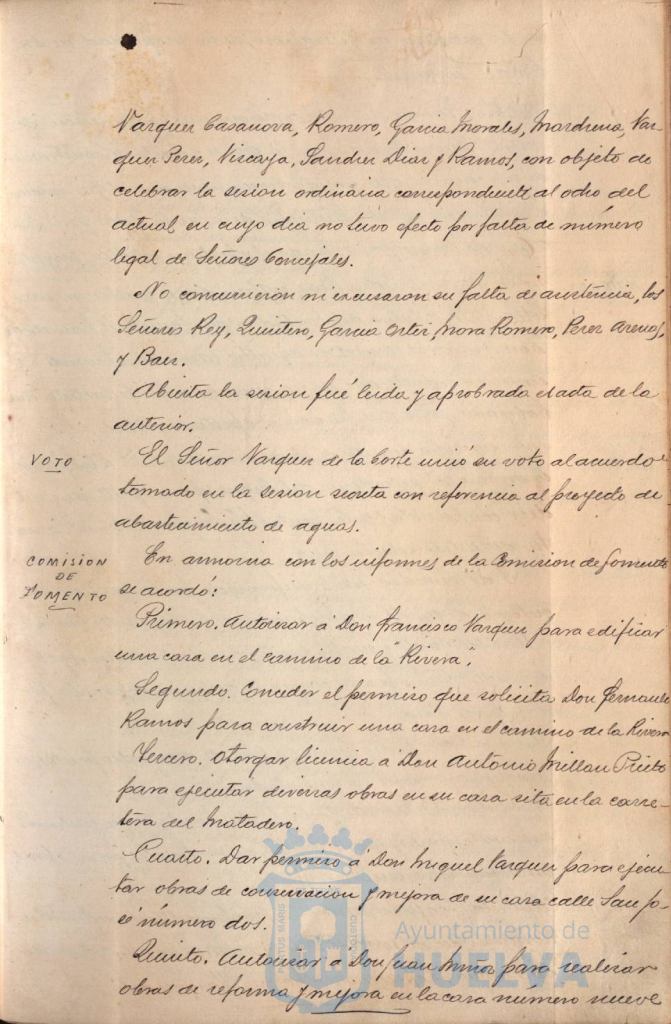 Vazquez Casanova, Romero, Garcia Morales, Mardrena, Vaz-
quez Perez, Vizcaya, Sanchez Diaz y Ramos, con objeto de
celebrar la sesion ordinaria correspondiente al ocho del
actual en cuyo dia no tuvo efecto por falta de número
legal de Señores Concejales.
No concurrieron ni excusaron su falta de asistencia, los
Señores Rey, Quintero, Garcia Ortiz, Mora Romero, Perez Arenas,
y Baez.
Abierta la sesion fué leida y aprobrada el acta de la
anterior.
VOTO
El Señor Vazquez de la Corte unió su voto al acuerdo
tomado en la sesion secreta con referencia al proyecto de
abastecimiento de aguas.
COMISION
DE
FOMENTO
En armonia con los informes de la Comision de fomento
se acordó:
Primero. Autorizar á Don Francisco Vazquez para edificar
una casa en el camino de la "Rivera".
Segundo. Conceder el permiso que solicita Don Fernando
Ramos para construir una casa en el camino de la Rivera
Tercero. Otorgar licencia á Don Antonio Millan Prieto
para ejecutar diversas obras en su casa sita en la carre-
tera del Matadero.
Cuarto. Dar permiso á Don Miguel Vazquez para ejecu-
tar obras de conservacion y mejora de su casa calle San Jo-
sé número dos.
Quinto. Autorizar á Don Juan Muñoz para realizar
obras de reforma y mejora en la casa número nueve
Ayuntamiento de
HUELVA